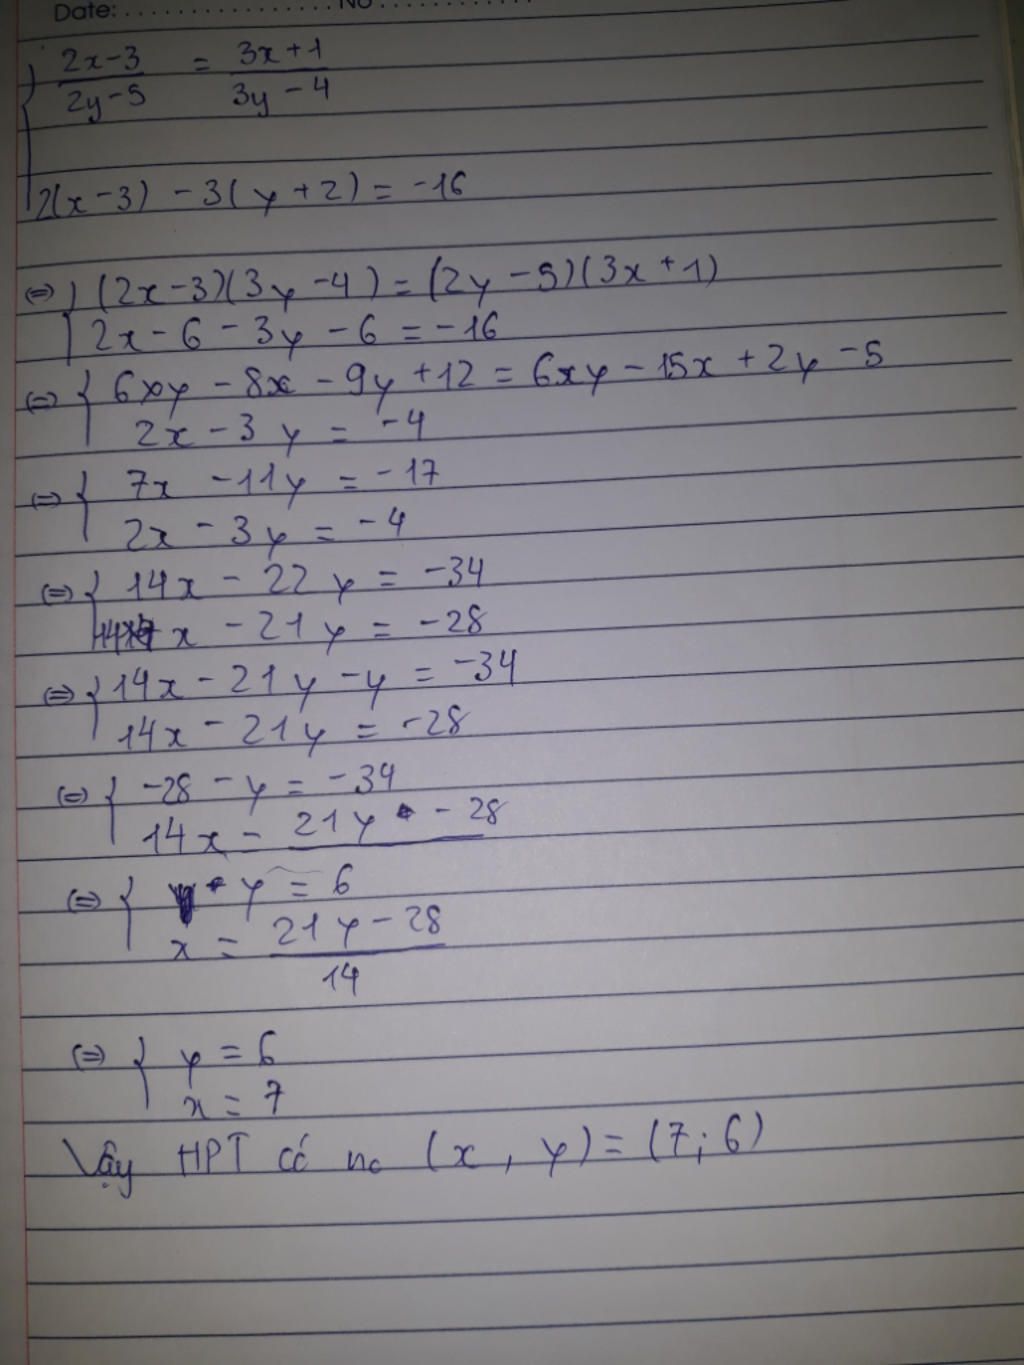 Date: ................. No ............
{ (2x-3)/(2y-5) = (3x+1)/(3y-4)
2(x-3) - 3(y+2) = -16
(=) { (2x-3)(3y-4) = (2y-5)(3x+1)
2x-6-3y-6 = -16
(=) { 6xy - 8x - 9y + 12 = 6xy - 15x + 2y - 5
2x - 3y = -4
(=) { 7x - 11y = -17
2x - 3y = -4
(=) { 14x - 22y = -34
x - 21y = -28
(=) { 14x - 21y - y = -34
14x - 21y = -28
(=) { -28 - y = -34
14x = 21y - 28
(=) { y = 6
x = (21y - 28)/14
(=) { y = 6
x = 7
Vậy HPT có no (x, y) = (7; 6)